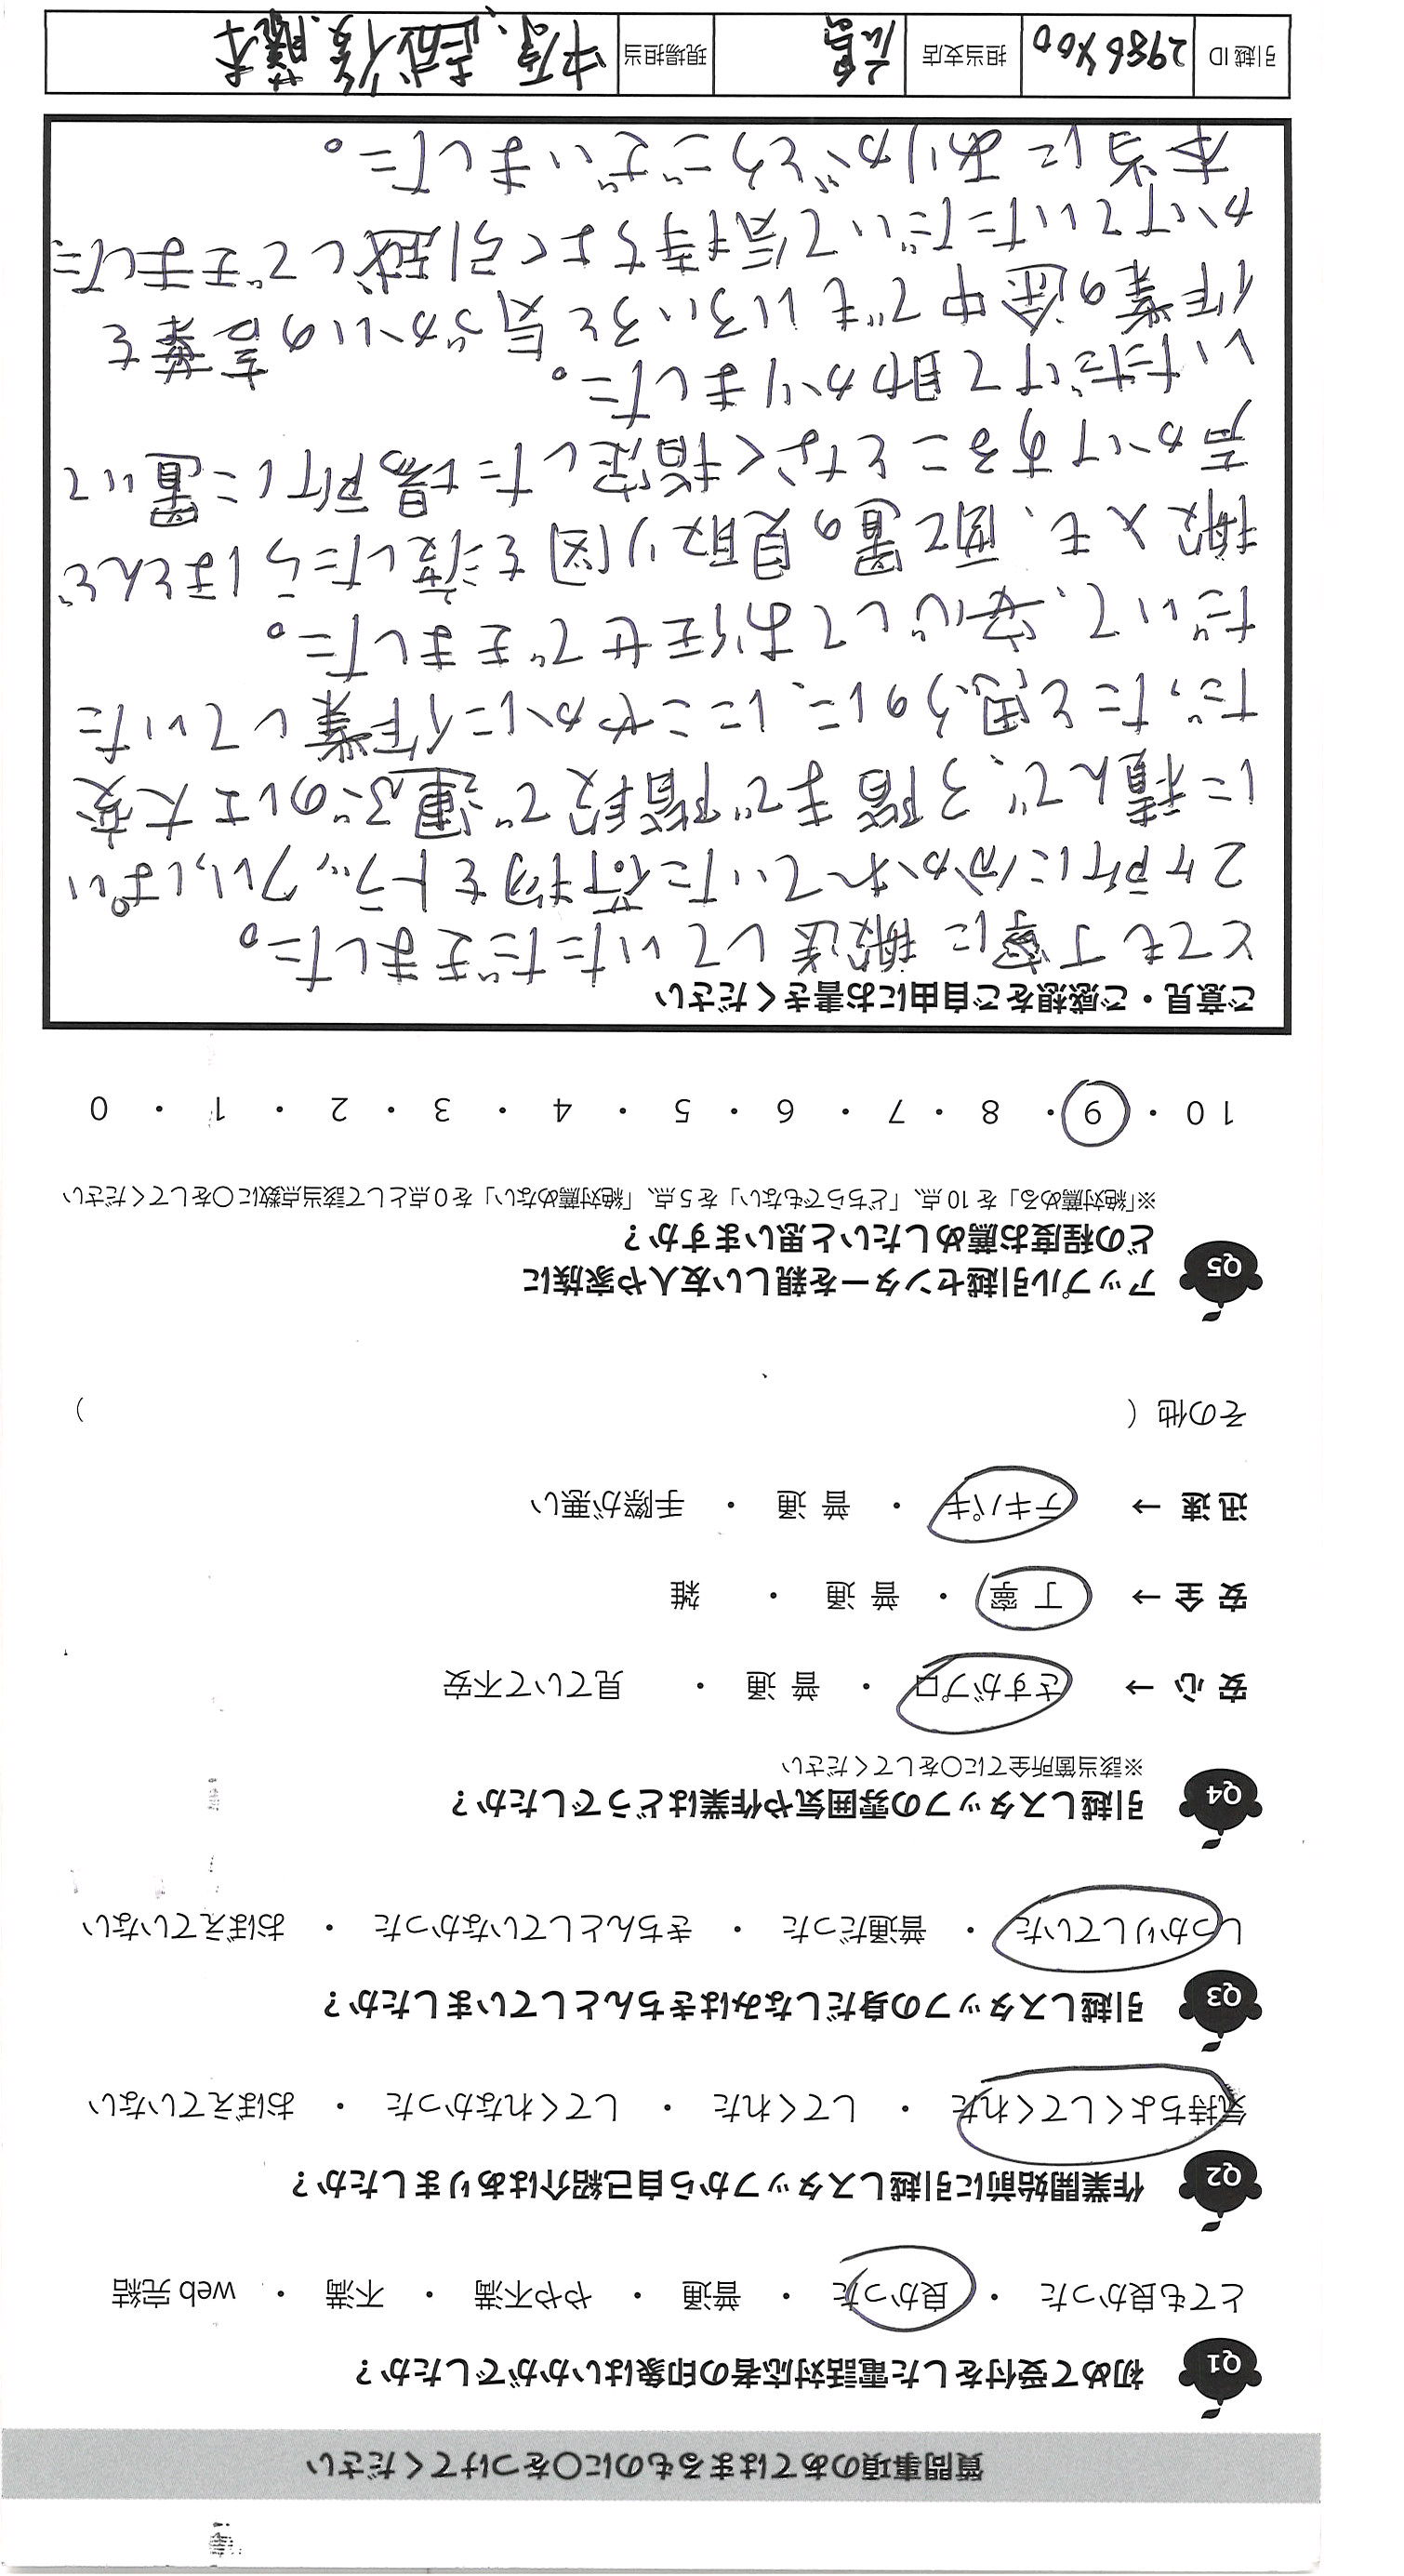 質問事項のあてはまるものに〇をつけてください
Q1 初めて受付をした電話対応者の印象はいかがでしたか？
とても良かった ・ 良かった ・ 普通 ・ やや不満 ・ 不満 ・ web 完結
Q2 作業開始前に引越しスタッフから自己紹介はありましたか？
気持ちよくしてくれた ・ してくれた ・ してくれなかった ・ おぼえていない
Q3 引越しスタッフの身だしなみはきちんとしていましたか？
しっかりしていた ・ 普通だった ・ きちんとしていなかった ・ おぼえていない
Q4 引越しスタッフの雰囲気や作業はどうでしたか？
※該当箇所全てに〇をしてください
安 心 → さすがプロ ・ 普 通 ・ 見ていて不安
安 全 → 丁 寧 ・ 普 通 ・ 雑
迅 速 → テキパキ ・ 普 通 ・ 手際が悪い
その他（ ）
Q5 アップル引越センターを親しい友人や家族に
どの程度お薦めしたいと思いますか？
※「絶対薦める」を 10 点、「どちらでもない」を 5 点、「絶対薦めない」を 0 点として該当点数に〇をしてください
10 ・ 9 ・ 8 ・ 7 ・ 6 ・ 5 ・ 4 ・ 3 ・ 2 ・ 1 ・ 0
ご意見・ご感想をご自由にお書きください
とても丁寧に搬送していただきました。
2ヶ所に分かれていた荷物をトラックいっぱい
に積んで、3階まで階段で運ぶのは大変
だったと思うのに、にこやかに作業していた
だいて、安心してお任せできました。
搬入も、配置の見取り図を渡したらほとんど
声かけすることなく指定した場所に置いて
いただけて助かりました。
作業の途中でもいろいろと気づかいの言葉を
かけていただいて気持ちよく引越しできました
本当にありがとうございました。
引越ID 2986400 担当支店 広島 現場担当 中原、越後、藤本